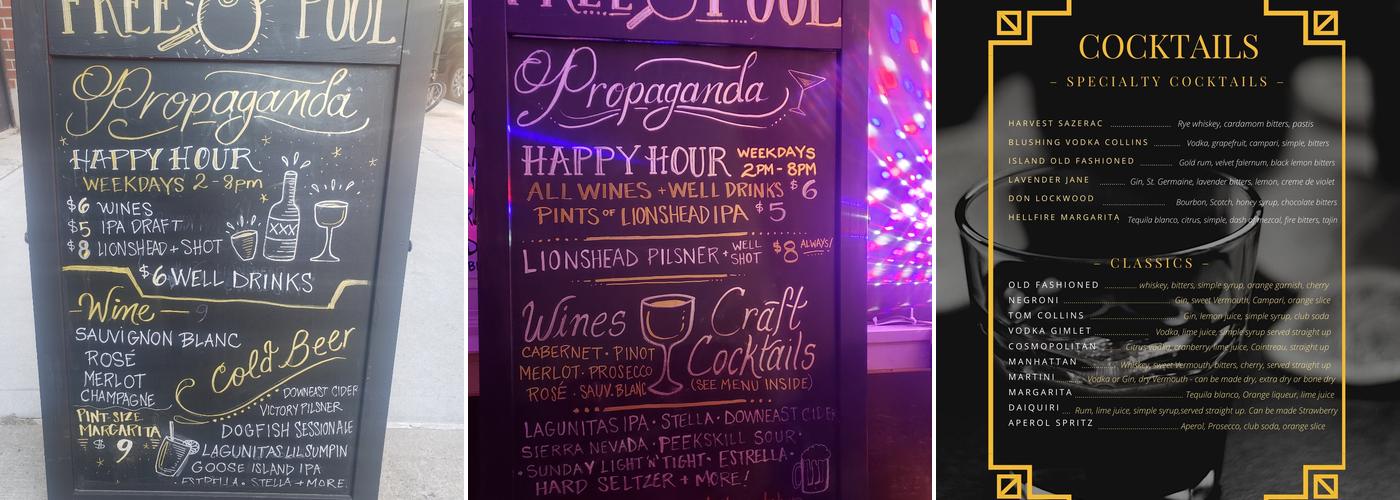 FREE POOL
Propaganda
HAPPY HOUR
WEEKDAYS 2-8pm
$6 WINES
$5 IPA DRAFT
$8 LIONSHEAD + SHOT
XXX
$6 WELL DRINKS
Wine
SAUVIGNON BLANC
ROSÉ
MERLOT
CHAMPAGNE
PINT-SIZE
MARGARITA
$9
Cold Beer
DOWNEAST CIDER
VICTORY PILSNER
DOGFISH SESSIONALE
LAGUNITAS LIL SUMPIN
GOOSE ISLAND IPA
· ESTRELLA · STELLA + MORE!
FREE POOL
Propaganda
HAPPY HOUR WEEKDAYS
2PM-8PM
ALL WINES + WELL DRINKS $6
PINTS OF LIONSHEAD IPA $5
LIONSHEAD PILSNER + WELL SHOT $8 ALWAYS!
Wines
CABERNET · PINOT
MERLOT · PROSECCO
ROSÉ · SAUV. BLANC
Craft
Cocktails
(SEE MENU INSIDE)
LAGUNITAS IPA · STELLA · DOWNEAST CIDER
SIERRA NEVADA · PEEKSKILL SOUR ·
· SUNDAY LIGHT 'N' TIGHT · ESTRELLA ·
HARD SELTZER + MORE!
COCKTAILS
– SPECIALTY COCKTAILS –
HARVEST SAZERAC Rye whiskey, cardamom bitters, pastis
BLUSHING VODKA COLLINS Vodka, grapefruit, campari, simple, bitters
ISLAND OLD FASHIONED Gold rum, velvet falernum, black lemon bitters
LAVENDER JANE Gin, St. Germaine, lavender bitters, lemon, creme de violet
DON LOCKWOOD Bourbon, Scotch, honey syrup, chocolate bitters
HELLFIRE MARGARITA Tequila blanco, citrus, simple, dash of mezcal, fire bitters, tajin
– CLASSICS –
OLD FASHIONED whiskey, bitters, simple syrup, orange garnish, cherry
NEGRONI Gin, sweet Vermouth, Campari, orange slice
TOM COLLINS Gin, lemon juice, simple syrup, club soda
VODKA GIMLET Vodka, lime juice, simple syrup served straight up
COSMOPOLITAN Citrus vodka, cranberry, lime juice, Cointreau, straight up
MANHATTAN Whiskey, sweet Vermouth, bitters, cherry, served straight up
MARTINI Vodka or Gin, dry Vermouth - can be made dry, extra dry or bone dry
MARGARITA Tequila blanco, Orange liqueur, lime juice
DAIQUIRI Rum, lime juice, simple syrup,served straight up. Can be made Strawberry
APEROL SPRITZ Aperol, Prosecco, club soda, orange slice